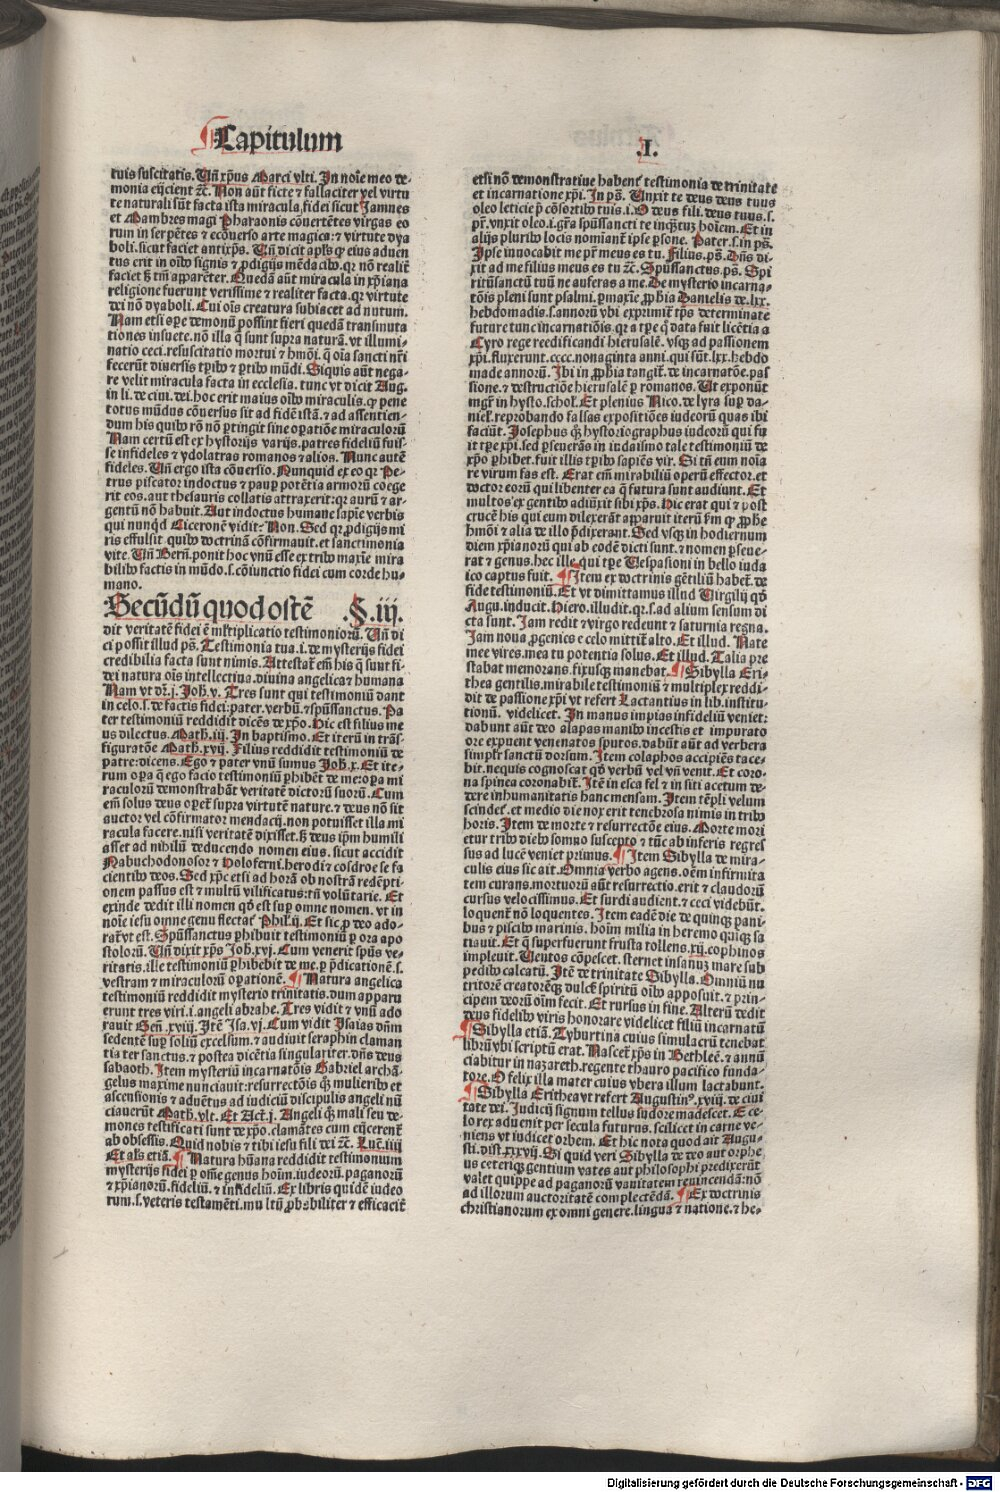 Capitulum
.I.
tuis suscitatis. Uñ xp̄us Marci vlti. In noīe meo de-
monia eijcient ꝛc̄. Non aūt ficte ⁊ fallaciter vel virtu
te naturali sūt facta ista miracula, fidei sicut Jamnes
et Mambres magi Pharaonis cōuertētes virgas eo
rum in serpētes ⁊ ecōuerso arte magica: ⁊ virtute dya
boli. sicut faciet antixp̄s. Uñ dicit apl̄s ꝙ eius aduen
tus erit in oīb⁹ signis ⁊ ꝓdigijs mēdacib⁹. qꝛ nō realit̄
faciet sꝫ tm̄ apparēter. Quedā aūt miracula in xp̄iana
religione fuerunt verissime ⁊ realiter facta. qꝛ virtute
dei nō dyaboli. Cui oīs creatura subiacet ad nutum.
Nam etsi ope demonū possint fieri quedā transmuta
tiones insuete. nō illa q̄ sunt supra naturā. vt illumi-
natio ceci. resuscitatio mortui ⁊ hmōi. q̄ oīa sancti nr̄i
fecerūt diuersis tꝑib⁹ ⁊ ꝑtib⁹ mūdi. Siquis aūt nega-
re velit miracula facta in ecclesia. tunc vt dicit Aug.
in li. de ciui. dei. hoc erit maius oīb⁹ miraculis. ꝙ pene
totus mūdus cōuersus sit ad fidē istā. ⁊ ad assentien-
dum his quib⁹ rō nō ꝑtingit sine oꝑatiōe miraculorū
Nam certū est ex hystorijs varijs. patres fideliū fuis-
se infideles ⁊ ydolatras romanos ⁊ alios. Nunc autē
fideles. Uñ ergo ista cōuersio. Nunquid ex eo qꝛ Pe-
trus piscator indoctus ⁊ pauꝑ potētia armorū coege
rit eos. aut thesauris collatis attraxerit: qꝛ aurū ⁊ ar-
gentū nō habuit. Aut indoctus humane sapīe verbis
qui nunq̄d Ciceronē vidit? Non. Sed qꝛ ꝓdigijs mi
ris effulsit. quib⁹ doctrinā cōfirmauit. et sanctimonia
vite. Uñ Berñ. ponit hoc vnū esse ex trib⁹ maxīe mira
bilib⁹ factis in mūdo. s. cōiunctio fidei cum corde hu-
mano.
Secūdū quod ostē .§.iij.
dit veritatē fidei ē ml̄tiplicatio testimoniorū. Uñ di
ci possit illud ps̄. Testimonia tua. i. de mysterijs fidei
credibilia facta sunt nimis. Attestat̄ em̄ his q̄ sunt fi-
dei natura oīs intellectiua. diuina angelica ⁊ humana
Nam vt dr̄. j. Joh̄. v. Tres sunt qui testimoniū dant
in celo. s. de factis fidei: pater. verbū. ⁊ spūssanctus. Pa
ter testimoniū reddidit dicēs de xp̄o. Hic est filius me
us dilectus. Math̄. iij. In baptismo. Et iterū in trās-
figuratōe Math̄. xvij. Filius reddidit testimoniū de
patre: dicens. Ego ⁊ pater vnū sumus Joh̄. x. Et ite-
rum oꝑa q̄ ego facio testimoniū ꝑhibēt de me: oꝑa mi
raculorū demonstrabāt veritatē dictorū suorū. Cum
em̄ solus deus oꝑet̄ supra virtutē nature. ⁊ deus nō sit
auctor vel cōfirmator mendacij. non potuisset illa mi
racula facere. nisi veritatē dixisset. sꝫ deus ip̄m humili
asset ad nihilū deducendo nomen eius. sicut accidit
Nabuchodonosor ⁊ Holoferni. herodi ⁊ cosdroe se fa
cientib⁹ deos. Sed xp̄c etsi ad horā ob nostrā redēpti-
onem passus est ⁊ multū vilificatus: tn̄ volūtarie. Et
exinde dedit illi nomen qd̄ est suꝑ omne nomen. vt in
noīe iesu omne genu flectat̄ Phil̄. ij. Et sic ꝓ deo ado-
rat̄ vt est. Spūssanctus ꝑhibuit testimoniū ꝑ ora apo
stolorū. Uñ dixit xp̄s Joh̄. xvj. Cum venerit spūs ve-
ritatis. ille testimoniū ꝑhibebit de me. ꝑ p̄dicationē. s.
vestram ⁊ miraculorū oꝑationē. ¶ Natura angelica
testimoniū reddidit mysterio trinitatis. dum apparu
erunt tres viri. i. angeli abrahe. Tres vidit ⁊ vnū ado
rauit Gen̄. xviij. Itē Isa. vj. Cum vidit Isaias dn̄m
sedentē suꝑ soliū excelsum. ⁊ audiuit seraphin claman
tia ter sanctus. ⁊ postea dicētia singulariter. dn̄s deus
sabaoth. Item mysteriū incarnatōis Gabriel archā-
gelus maxime nunciauit: resurrectōis qꝫ mulierib⁹ et
ascensionis ⁊ aduētus ad iudiciū discipulis angeli nū
ciauerūt Math̄. vlt. Et Act̄. j. Angeli qꝫ mali seu de-
mones testificati sunt de xp̄o. clamātes cum eijcerent̄
ab obsessis. Quid nobis ⁊ tibi iesu fili dei ꝛc̄. Luc̄. iiij
Et al̄s etiā. ¶ Natura hūana reddidit testimonium
mysterijs fidei ꝑ om̄e genus hoīm. iudeorū. paganorū
⁊ xp̄ianorū. fideliū. ⁊ infideliū. Ex libris quidē iudeo
rum. s. veteris testamēti. multū ꝓbabiliter ⁊ efficacit̄
etsi nō demonstratiue habent̄ testimonia de trinitate
et incarnatione xp̄i. In ps̄. Unxit te deus deus tuus
oleo leticie p̄ cōsortib⁹ tuis. i. O deus fili. deus tuus. s.
pr̄. vnxit oleo. i. gr̄a spūssancti te inq̄tuꝫ hoīem. Et in
alijs plurib⁹ locis nominant̄ ipse ꝑsone. Pater. s. in ps̄.
Ipse inuocabit me pr̄ meus es tu. Filius. ps̄. Dn̄s di-
xit ad me filius meus es tu ꝛc̄. Spūssanctus. ps̄. Spi
ritūsanctū tuū ne auferas a me. De mysterio incarna-
tōis pleni sunt psalmi. ꝑmaxīe ꝓphīa Danielis de. lxx.
hebdomadis. s. annorū vbi exprimit̄ tp̄s determinate
future tunc incarnatiōis. qꝛ a tꝑe q̄ data fuit licētia a
Cyro rege reedificandi hierusalē. vsqꝫ ad passionem
xp̄i. fluxerunt. cccc. nonaginta anni. qui sūt. lxx. hebdo
made annorū. Ibi in ꝓphīa tangit̄. de incarnatōe. pas
sione. ⁊ destructiōe hierusalē ꝑ romanos. Ut exponūt
mgr̄i in hysto. schol̄. Et plenius Nico. de lyra suꝑ da-
niel̄. reprobando falsas expositiōes iudeorū quas ibi
faciūt. Josephus qꝫ hystoriographus iudeorū qui fu
it tꝑe xp̄i. sed ꝑseuerās in iudaismo tale testimoniū de
xp̄o ꝑhibet. fuit illis tꝑib⁹ sapiēs vir. Si tn̄ eum noīa
re virum fas est. Erat em̄ mirabiliū operū effector. et
doctor eorū qui libenter ea q̄ futura sunt audiunt. Et
multos ex gentib⁹ adiūxit sibi xp̄s. Hic erat qui ⁊ post
crucē his qui eum dilexerāt apparuit iterū ẜm ꝙ ꝓphe
hmōi ⁊ alia de illo p̄dixerant. Sed vsqꝫ in hodiernum
diem xp̄ianorū qui ab eodē dicti sunt. ⁊ nomen ꝑseue-
rat ⁊ genus. hec ille. qui tꝑe Uespasioni in bello iuda
ico captus fuit. ¶ Item ex doctrinis gētiliū habet̄. de
fide testimoniū. Et vt dimittamus illud Uirgilij qd̄
Augu. inducit. Hiero. illudit. qꝛ. s. ad alium sensum di
cta sunt. Jam redit ⁊ virgo redeunt ⁊ saturnia regna.
Jam noua ꝓgenies e celo mittit̄ alto. Et illud. Nate
mee vires. mea tu potentia solus. Et illud. Talia pre
stabat memorans. fixusqꝫ manebat. ¶ Sibylla Eri-
thea gentilis. mirabile testimoniū ⁊ multiplex reddi-
dit de passione xp̄i vt refert Lactantius in lib. institu-
tionū. videlicet. In manus impias infideliū veniet:
dabunt aūt deo alapas manib⁹ incestis et impurato
ore expuent venenatos sputos. dabūt aūt ad verbera
simpl̄r sanctū dorsum. Item colaphos accipiēs tace-
bit. nequis cognoscat qd̄ verbū vel vn̄ venit. Et coro-
na spinea coronabit̄. Itē in esca fel ⁊ in siti acetum de-
dere inhumanitatis hanc mensam. Item tēpli velum
scindet̄. et medio die nox erit tenebrosa nimis in trib⁹
horis. Item de morte ⁊ resurrectōe eius. Morte mori
etur trib⁹ dieb⁹ somno suscepto ⁊ tūc ab inferis regres
sus ad lucē veniet primus. ¶ Item Sibylla de mira-
culis eius sic ait. Omnia verbo agens. oēm infirmita
tem curans. mortuorū aūt resurrectio. erit ⁊ claudorū
cursus velocissimus. Et surdi audient. ⁊ ceci videbūt.
loquent̄ nō loquentes. Item eadē die de quinqꝫ pani-
bus ⁊ piscib⁹ marinis. hoīm milia in heremo quiqꝫ sa
tiauit. Et q̄ superfuerunt frusta tollens. xij. cophinos
impleuit. Uentos cōpescet. sternet insanuꝫ mare sub
pedib⁹ calcatū. Itē de trinitate Sibylla. Omniū nu
tritorē creatorēqꝫ dulcē spiritū oīb⁹ apposuit. ⁊ prin-
cipem deorū oīm fecit. Et rursus in fine. Alterū dedit
deus fidelib⁹ viris honorare videlicet filiū incarnatū
¶ Sibylla etiā. Tyburtina cuius simulacrū tenebat
librū vbi scriptū erat. Nascet̄ xp̄s in Bethleē. ⁊ annū
ciabitur in nazareth. regente thauro pacifico funda-
tore. O felix illa mater cuius vbera illum lactabunt.
¶ Sibylla Erithea vt refert Augustin⁹. xviij. de ciui
tate dei. Judicij signum tellus sudore madescet. E ce-
lo rex adueniet per secula futurus. scilicet in carne ve-
niens vt iudicet orbem. Et hic nota quod ait Augu-
sti. dist. xxxvij. Si quid veri Sibylla de deo aut orphe
us ceteriqꝫ gentium vates aut philosophi predixerūt
valet quippe ad paganorū vanitatem reuincendā: nō
ad illorum auctoritatē complectēdā. ¶ Ex doctrinis
christianorum ex omni genere. lingua ⁊ natione. ⁊ he-
Digitalisierung gefördert durch die Deutsche Forschungsgemeinschaft - DFG